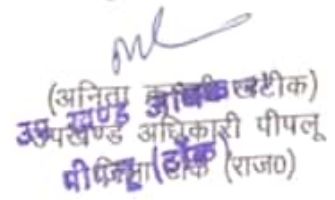 (अनिता कुमारी खटीक)
उपखण्ड अधिकारी पीपलू
जिला टोंक (राज०)
उप खण्ड अधिकारी
पीपलू (टोंक)